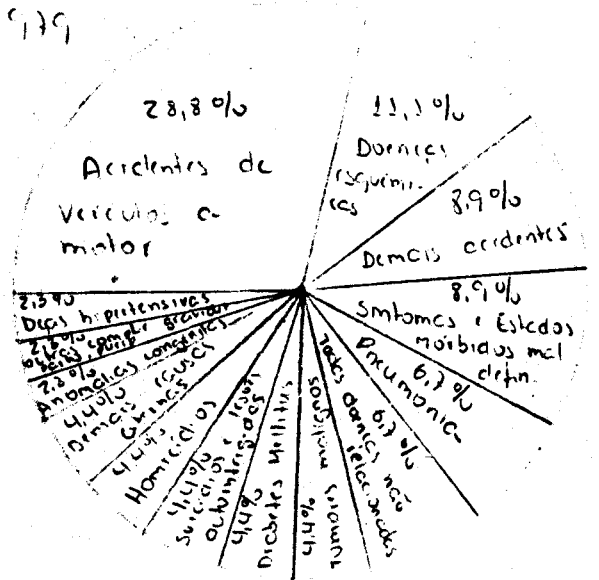 979
28,8%
Acidentes de
veículos a
motor
11,1%
Doenças
isquêmi-
cas
8,9%
Demais acidentes
8,9%
Sintomas e Estados
mórbidos mal
defin.
6,7%
Pneumonia
6,7%
Todas doenças não
relacionadas
4,4%
Tumores malignos
4,4%
Diabetes Mellitus
4,4%
Suicídios e lesões
autoinfrigidas
4,4%
Homicídios
4,4%
Demais causas
2,3%
Anomalias congênitas
2,3%
2,3%
Dças hipertensivas